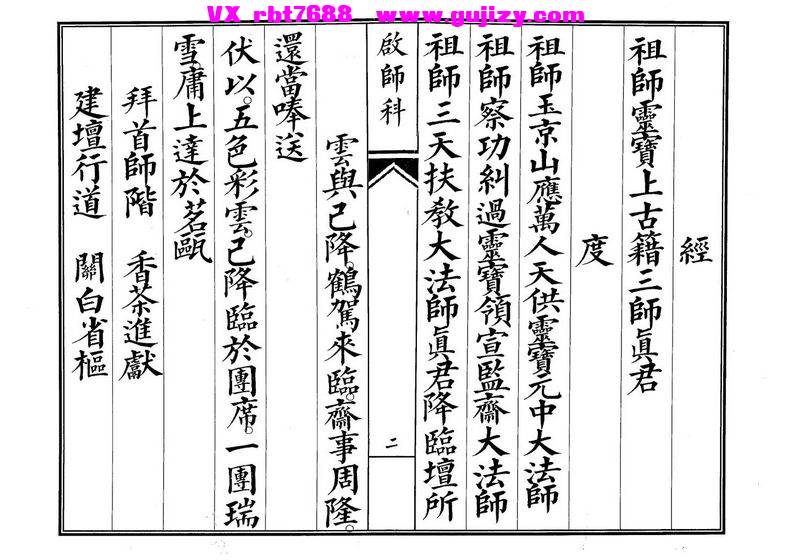 VX rbt7688 www.gujizy.com
經
祖師靈寶上古籍三師眞君
度
祖師玉京山應萬人天供靈寶元中大法師
祖師察功糾過靈寶領宣監齋大法師
祖師三天扶教大法師眞君降臨壇所
啟師科
二
雲與已降。鶴駕來臨。齋事周隆。
還當奉送
伏以。五色彩雲。已降臨於團席。一團瑞
雪。庸上達於茗甌
拜首師階 香茶進獻
建壇行道 關白省樞